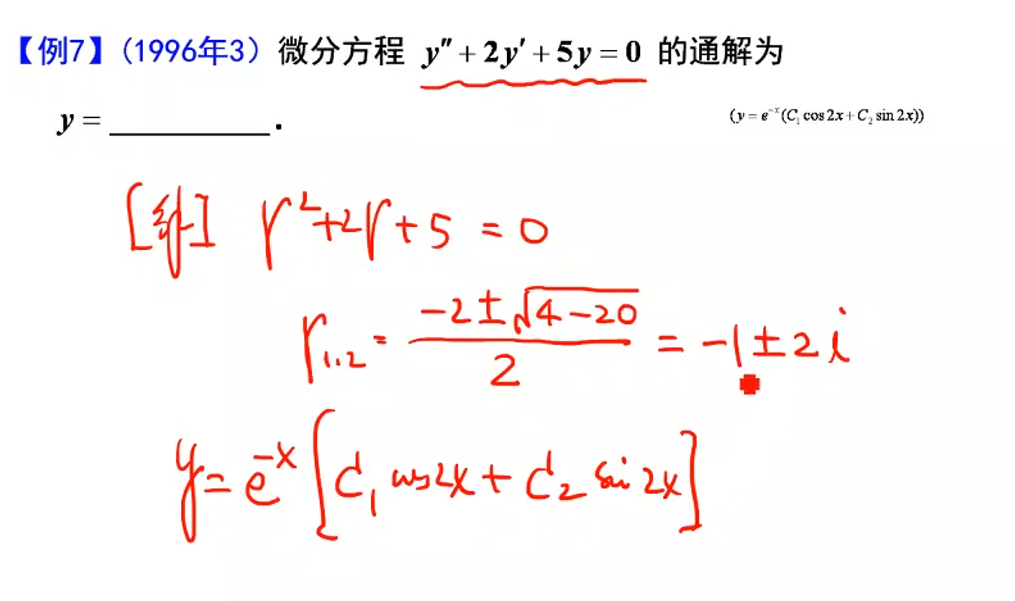 【例7】(1996年3) 微分方程 y″ + 2y′ + 5y = 0 的通解为
y = ________ .
(y = e⁻ˣ(C₁ cos 2x + C₂ sin 2x))
[解] r² + 2r + 5 = 0
r₁,₂ = (-2 ± √(4-20)) / 2 = -1 ± 2i
y = e⁻ˣ [C₁ cos2x + C₂ sin 2x]